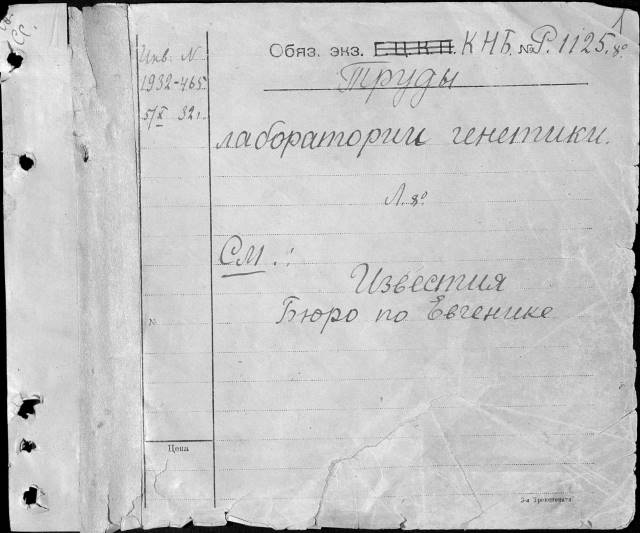 1
СС.
Инв. N
1932-465
5/X 32 г.
Обяз. экз. Е.Ц.К.П. КНБ. № Р. 1125. 8°
Труды
лаборатории генетики.
Л. 8°
См.:
Известия
Бюро по Евгенике
№
Цена